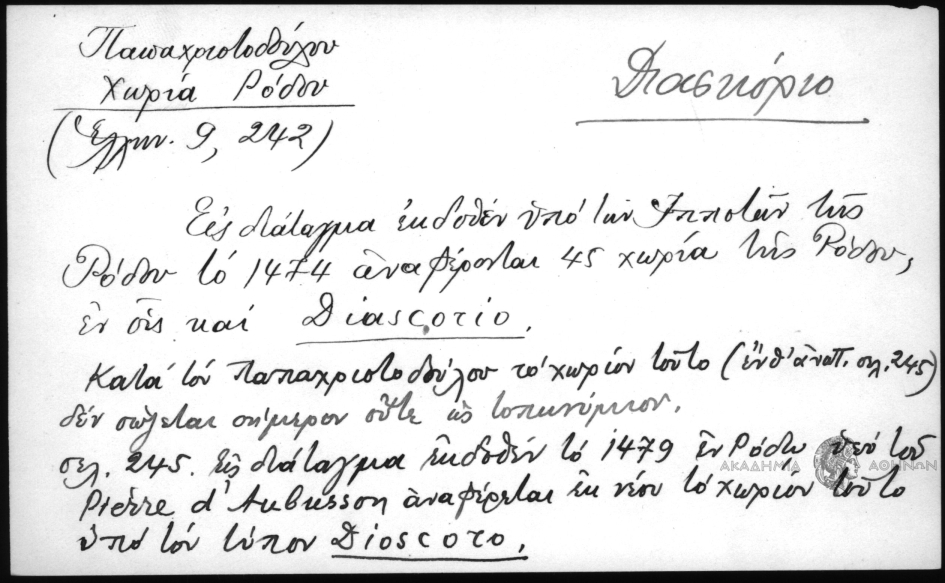 Παπαχριστοδούλου
Χωριά Ρόδου
(Ἑλλην. 9, 242)
Διασκόριο
Εἰς διάταγμα ἐκδοθέν ὑπό τῶν Ἱπποτῶν τῆς
Ρόδου τό 1474 ἀναφέρονται 45 χωριά τῆς Ρόδου,
ἐν οἷς καί Diascorio.
Κατά τόν Παπαχριστοδούλου τό χωρίον τοῦτο (ἔνθ' ἀνωτ. σελ. 245)
δέν σῴζεται σήμερον οὔτε ὡς τοπωνύμιον.
σελ. 245. Εἰς διάταγμα ἐκδοθέν τό 1479 ἐν Ρόδῳ ὑπό τοῦ
Pierre d'Aubusson ἀναφέρεται ἐκ νέου τό χωρίον τοῦτο
ὑπό τόν τύπον Dioscoro.
ΑΚΑΔΗΜΙΑ ΑΘΗΝΩΝ